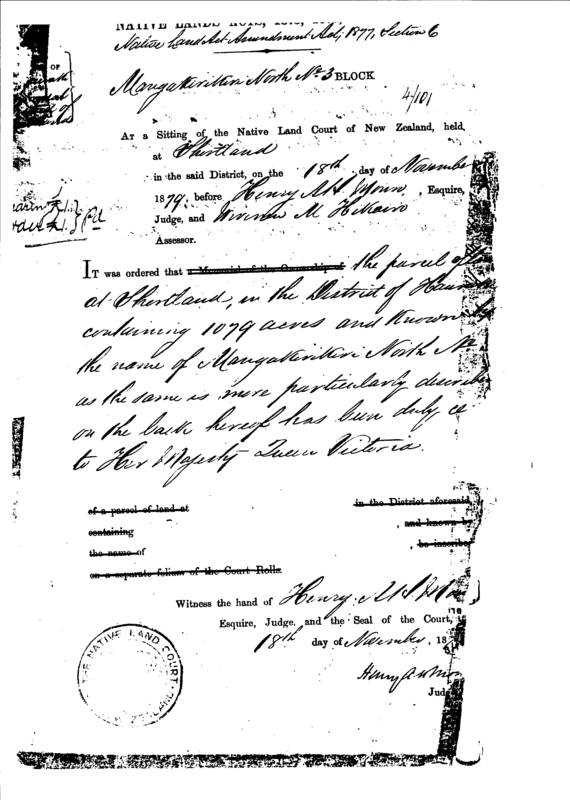 NATIVE LANDS ACTS,
Native Land Act Amendment Act, 1877, Section 6
OF
Mangakirikiri North No 3 BLOCK
4/101
AT a Sitting of the Native Land Court of New Zealand, held,
at Shortland
in the said District, on the 18th day of November
1879, before Henry , Esquire,
Judge, and
Assessor.
IT was ordered that a Memorial of the Ownership of the parcel of
at Shortland, in the District of
containing 1079 acres and known by
the name of Mangakirikiri North No
as the same is more particularly
on the back hereof has been duly ce
to Her Majesty Queen Victoria.
of a parcel of land at in the District aforesaid,
containing , and known by
the name of , be inscribed
on a separate folium of the Court Rolls.
Witness the hand of Henry
Esquire, Judge, and the Seal of the Court,
18th day of November, 18
Henry
Jud
THE NATIVE LAND COURT